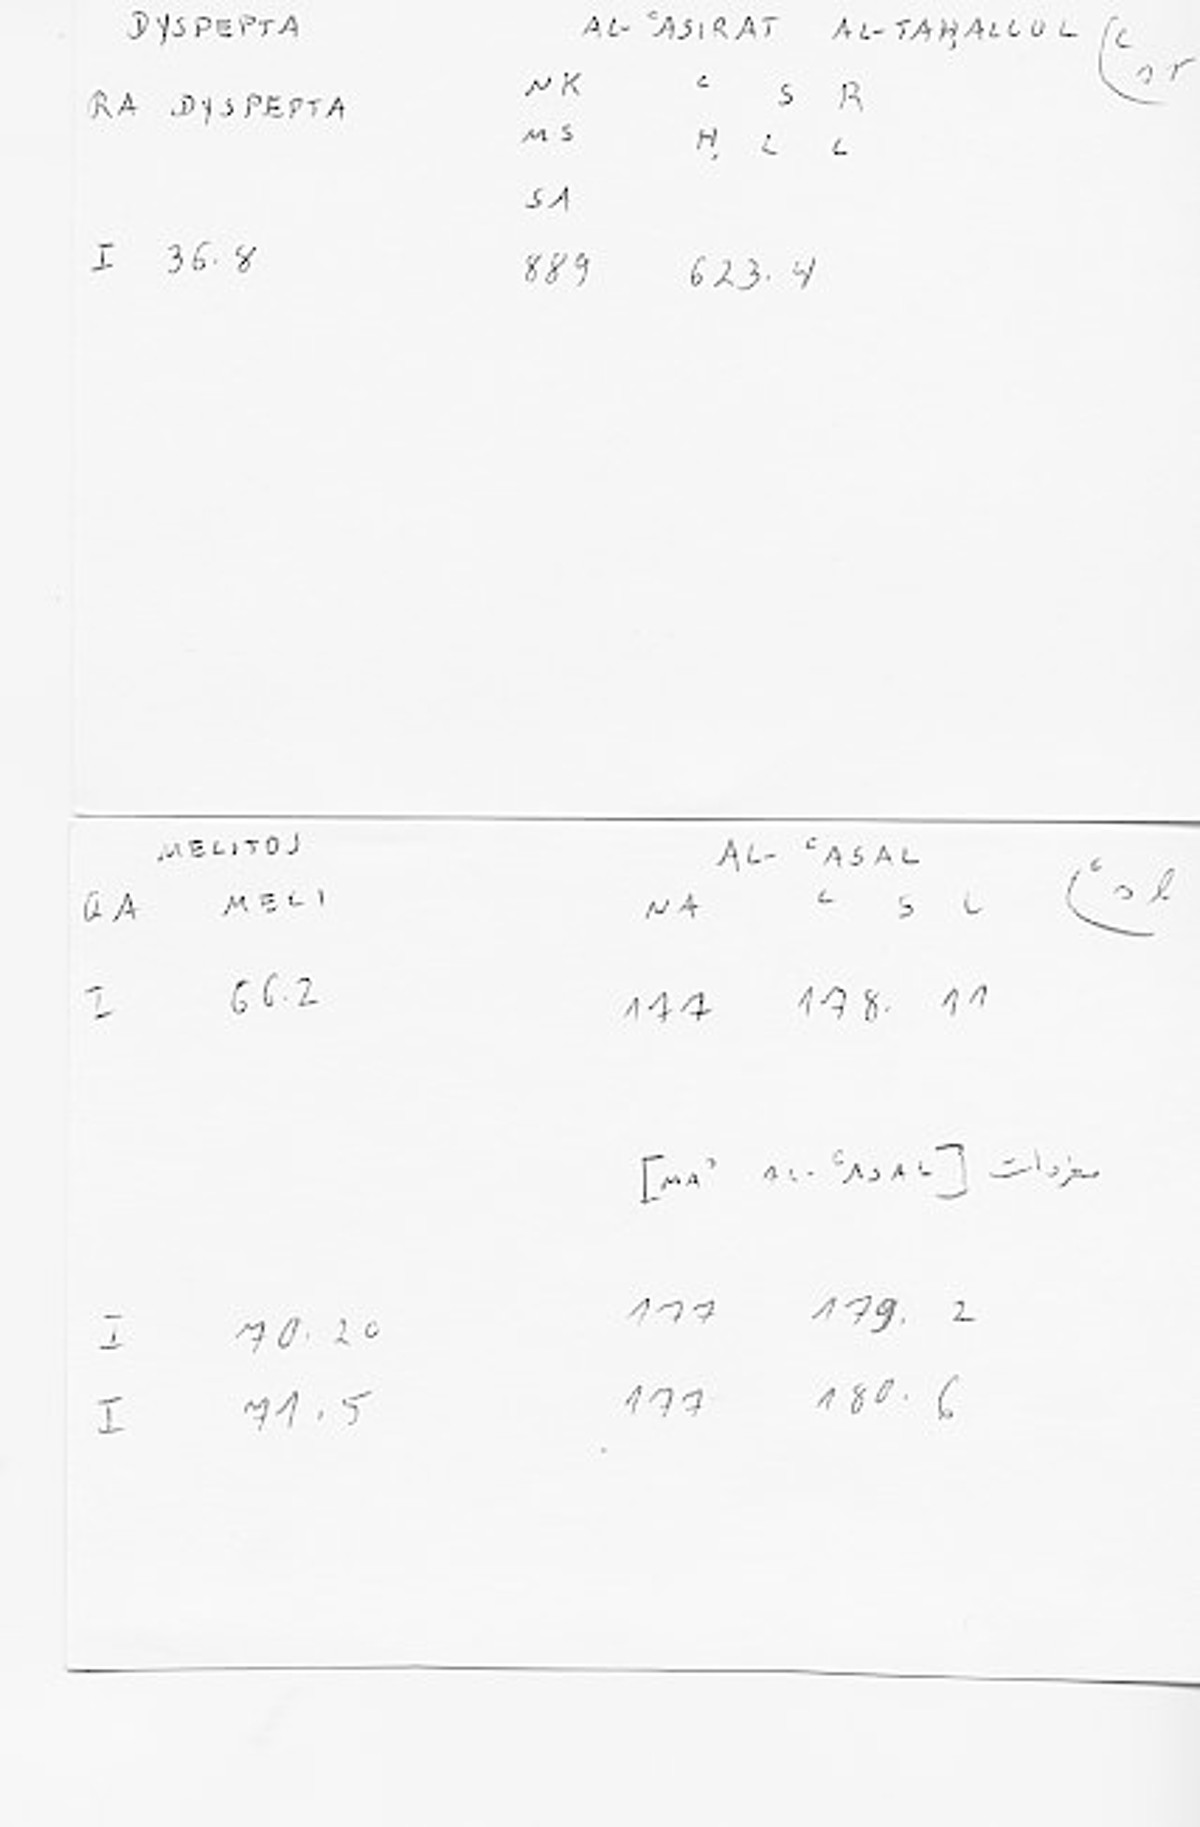 DYSPEPTA AL-ʿASIRAT AL-TAḤALLUL (ʿsr
RA DYSPEPTA NK ʿ S R
MS Ḥ L L
SA
I 36.8 889 623.4
MELITOS AL-ʿASAL (ʿsl
QA MELI NA ʿ S L
I 66.2 177 178. 11
[MAʾ AL-ʿASAL] مفردات
I 70.20 177 179. 2
I 71.5 177 180. 6